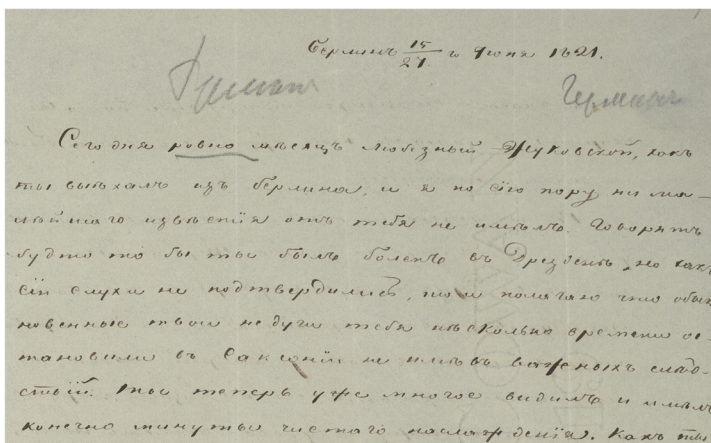 Берлинъ 15/27 го Июня 1821.
Германъ
Сего дня ровно мѣсяцъ любезный Жуковской, какъ
ты выѣхалъ изъ берлина, и я по сію пору ни ма-
лѣйшаго извѣстія отъ тебя не имѣлъ. Говорятъ
будто то бы ты былъ боленъ въ Дрезденѣ, но какъ
сіи слухи не подтвердились, то и полагаю что обык
новенные твои недуги тебя нѣсколько времени ос
тановили въ Саксоніи не имѣвъ важныхъ слѣд-
ствій. Ты теперь уже многое видилъ и имѣлъ
конечно минуты чистаго наслажденія. Какъ ты